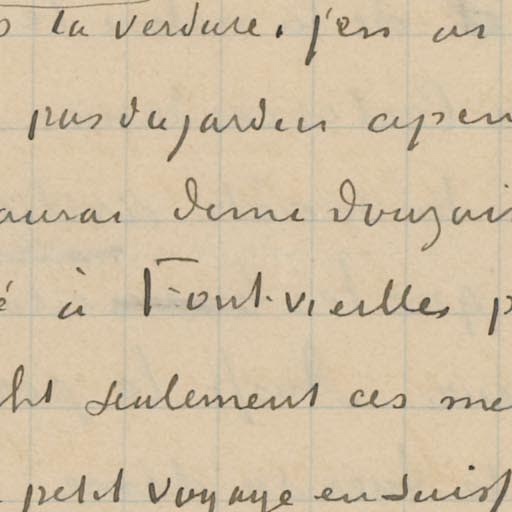 la verdure. j'en ai
pas du jardin apen
aurai demi douzai
é à Font-vieilles p
seulement ces me
petit voyage en Suiss